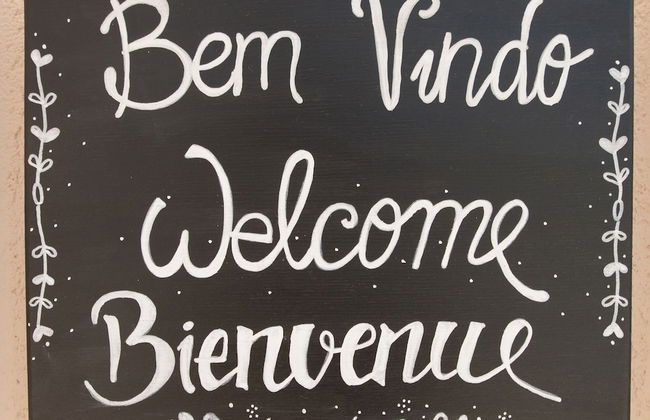 Bem Vindo
Welcome
Bienvenue